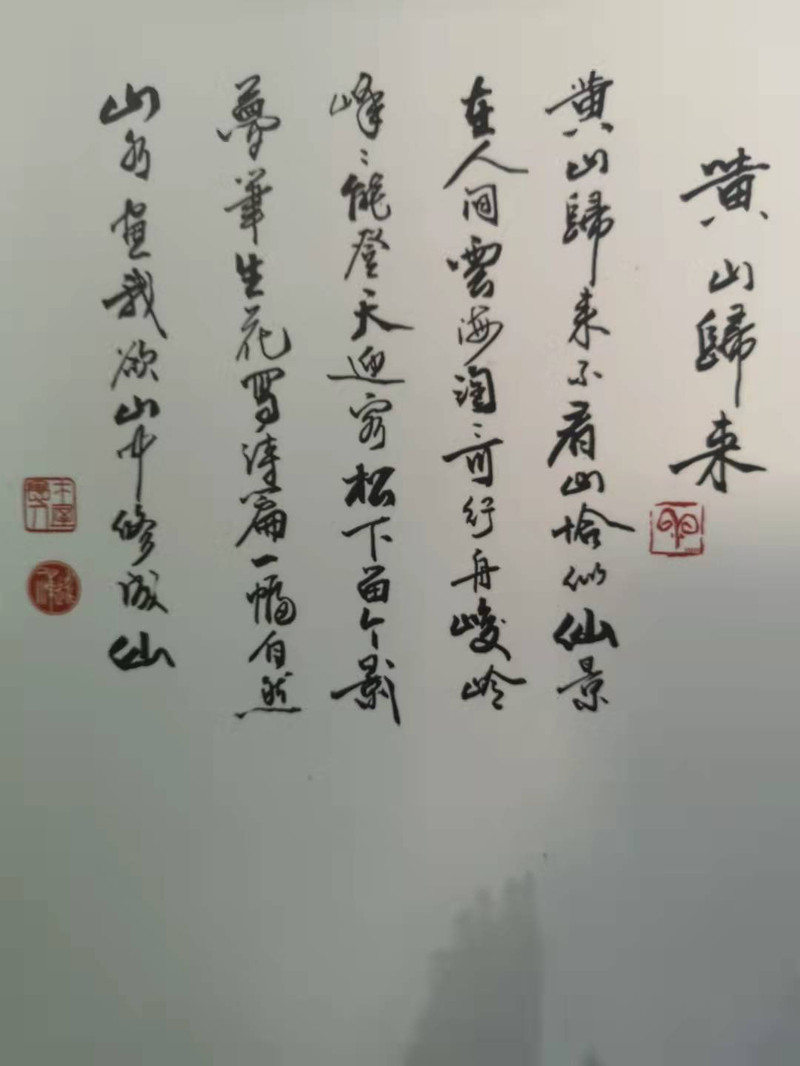 黄山歸来
黄山歸来不看山恰似仙景
在人间雲海淘〻可行舟峻岭
峰〻能登天迎客松下留个影
夢筆生花写诗篇一幅自然
山水画我欲山中修成仙